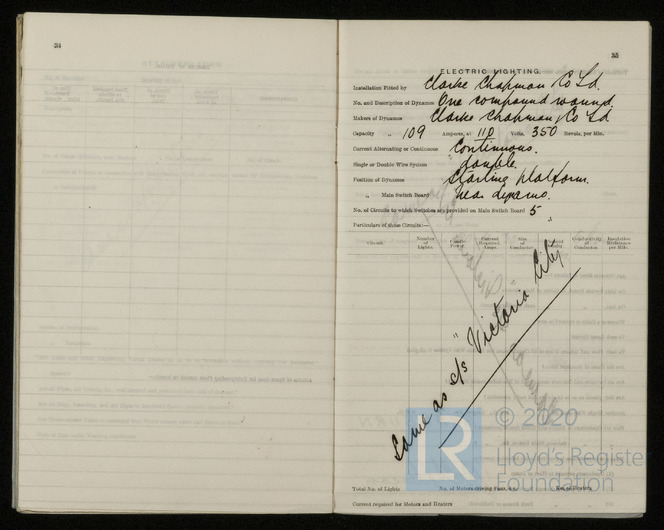 34
35
ELECTRIC LIGHTING.
Installation Fitted by Clarke Chapman Co Ld.
No. and Description of Dynamos One compound wound.
Makers of Dynamos Clarke Chapman Co Ld
Capacity „ 109 Amperes, at 110 Volts, 350 Revols. per Min.
Current Alternating or Continuous Continuous.
Single or Double Wire System double.
Position of Dynamos Starting platform.
„ Main Switch Board near dynamo.
No. of Circuits to which Switches are provided on Main Switch Board 5
Particulars of these Circuits:—
Circuit. Number of Lights. Candle Power. Current Required. Amps. Size of Conductor. Current Density. Conductivity of Conductor. Insulation Resistance per Mile.
Same as s/s "Victoria City"
Total No. of Lights No. of Motors driving Fans, &c. No. of Heaters
Current required for Motors and Heaters
© 2020
LR Lloyd's Register
Foundation